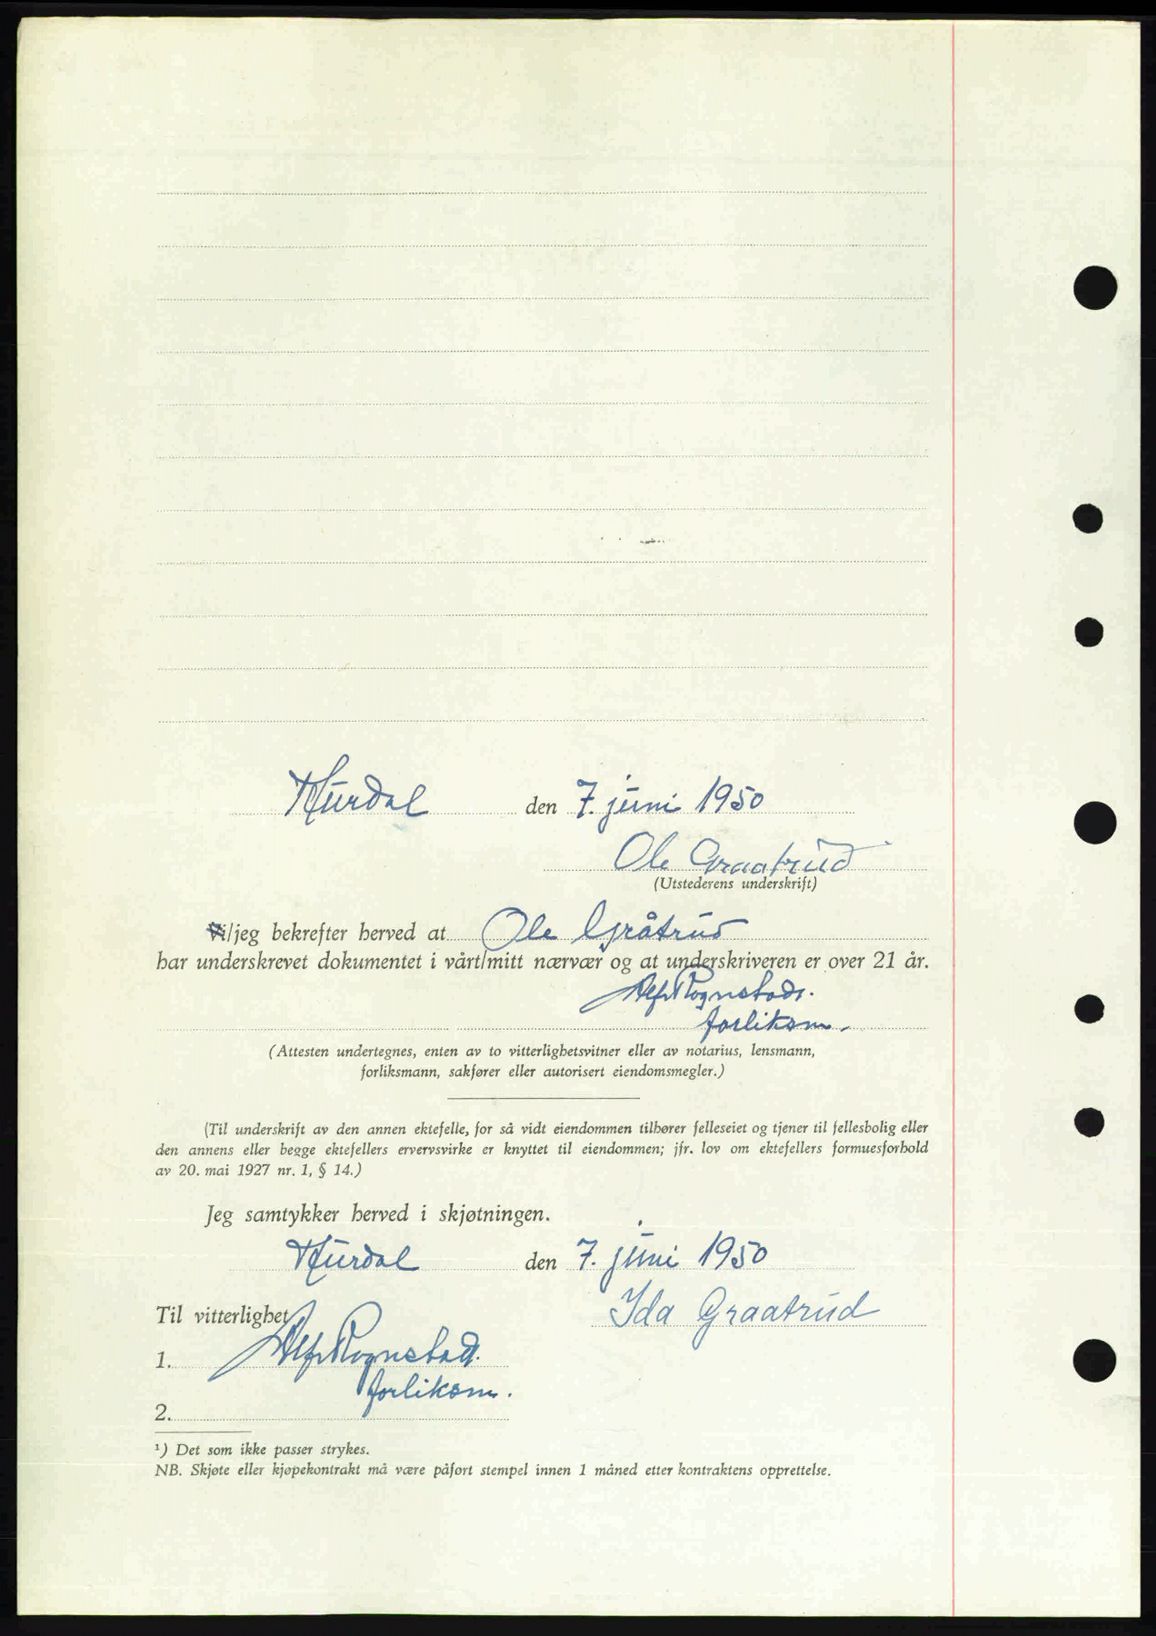 Hurdal den 7. juni 1950
Ole Graatrud
(Utstederens underskrift)
Vi/jeg bekrefter herved at Ole Gråtrud
har underskrevet dokumentet i vårt/mitt nærvær og at underskriveren er over 21 år.
Alf Rognstad.
forliksm.
(Attesten undertegnes, enten av to vitterlighetsvitner eller av notarius, lensmann,
forliksmann, sakfører eller autorisert eiendomsmegler.)
(Til underskrift av den annen ektefelle, for så vidt eiendommen tilhører felleseiet og tjener til fellesbolig eller
den annens eller begge ektefellers ervervsvirke er knyttet til eiendommen; jfr. lov om ektefellers formuesforhold
av 20. mai 1927 nr. 1, § 14.)
Jeg samtykker herved i skjøtningen.
Hurdal den 7. juni 1950
Til vitterlighet Ida Graatrud
1. Alf Rognstad.
forliksm.
2.
¹) Det som ikke passer strykes.
NB. Skjøte eller kjøpekontrakt må være påført stempel innen 1 måned etter kontraktens opprettelse.